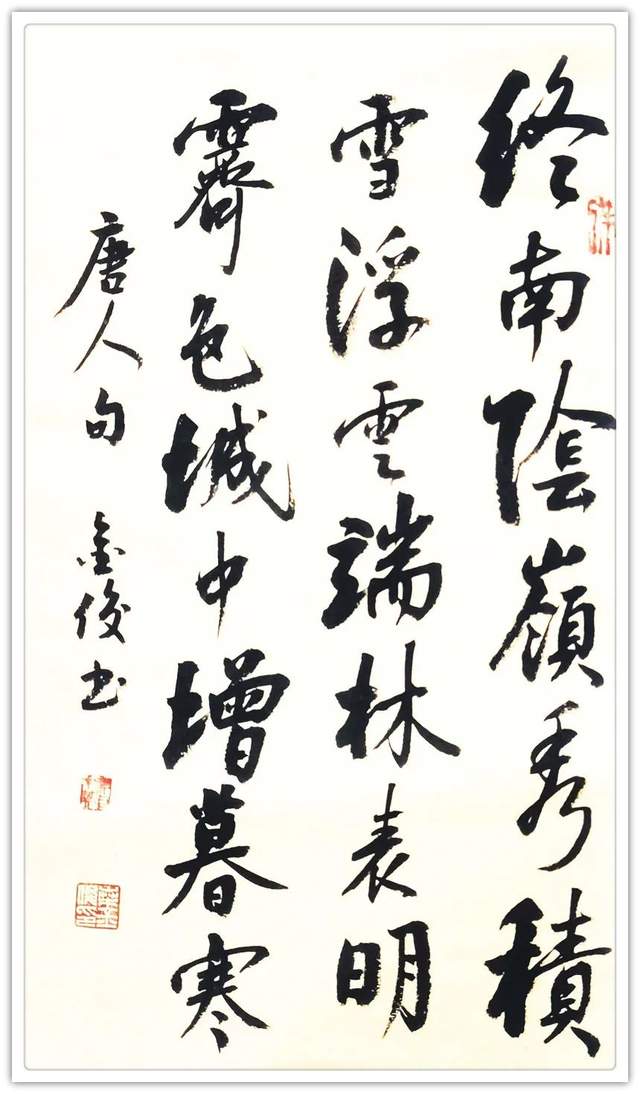 終南陰嶺秀積
雪浮雲端林表明
霽色城中增暮寒
唐人句 金俊书